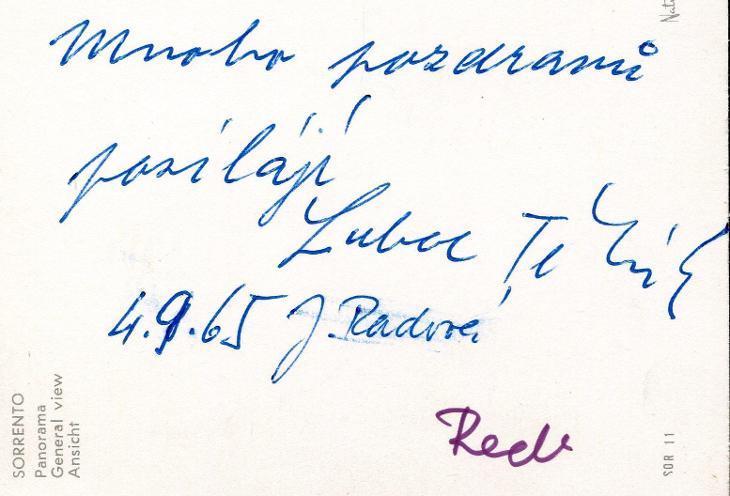 Mnoho pozdravů
posílají
Luboš
4.9.65 J. Radová
SORRENTO
Panorama
General view
Ansicht
SOR 11